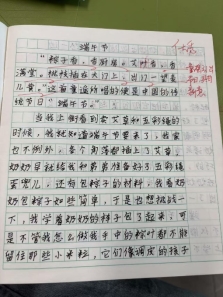 端午节
"粽子香,香厨房。艾叶香,香
满堂。桃枝插在大门上,出门一望麦
儿黄。"这首童谣所唱的便是中国的传
统节日"端午节"。
当我上街看到卖艾草和五彩绳的
时候,我就知道端午节要来了,我家
也不例外,每个角落都插上了艾草,
奶奶早就给我和弟弟准备好了五彩绳
蛋兜儿,还有包粽子的材料,我看奶
奶包粽子如此简单,于是也想挑战一
下,我学着奶奶的样子包了起来,可
是不管我怎么做我手中的粽叶都不能
留住那些小米粒,它们像调皮的孩子